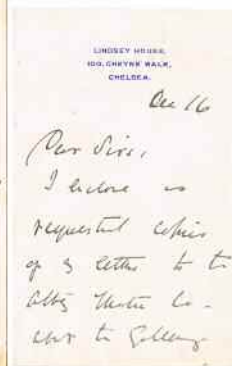 LINDSEY HOUSE,
100, CHEYNE WALK,
CHELSEA.
Dec 16
Dear Sirs,
I enclose as
requested copies
of letter to the
Abbey Theatre Co-
to Gallery